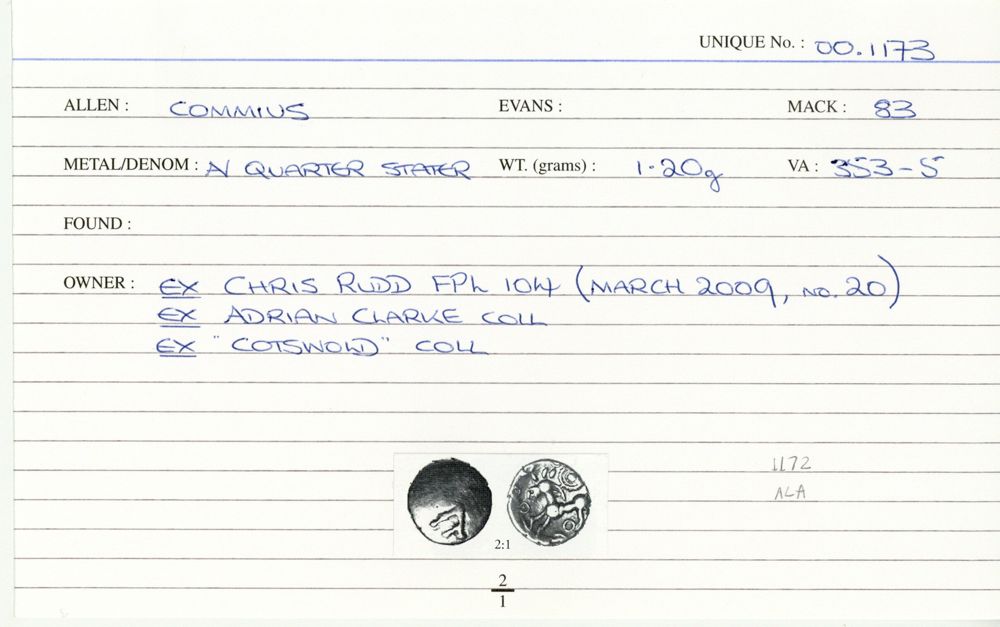 UNIQUE No. : 00.1173
ALLEN : COMMIUS EVANS : MACK : 83
METAL/DENOM : N QUARTER STATER WT. (grams) : 1.20g VA : 353-5
FOUND :
OWNER : EX CHRIS RUDD FPL 104 (MARCH 2009, NO. 20)
EX ADRIAN CLARKE COLL
EX "COTSWOLD" COLL
1172
ALA
2:1
2
1